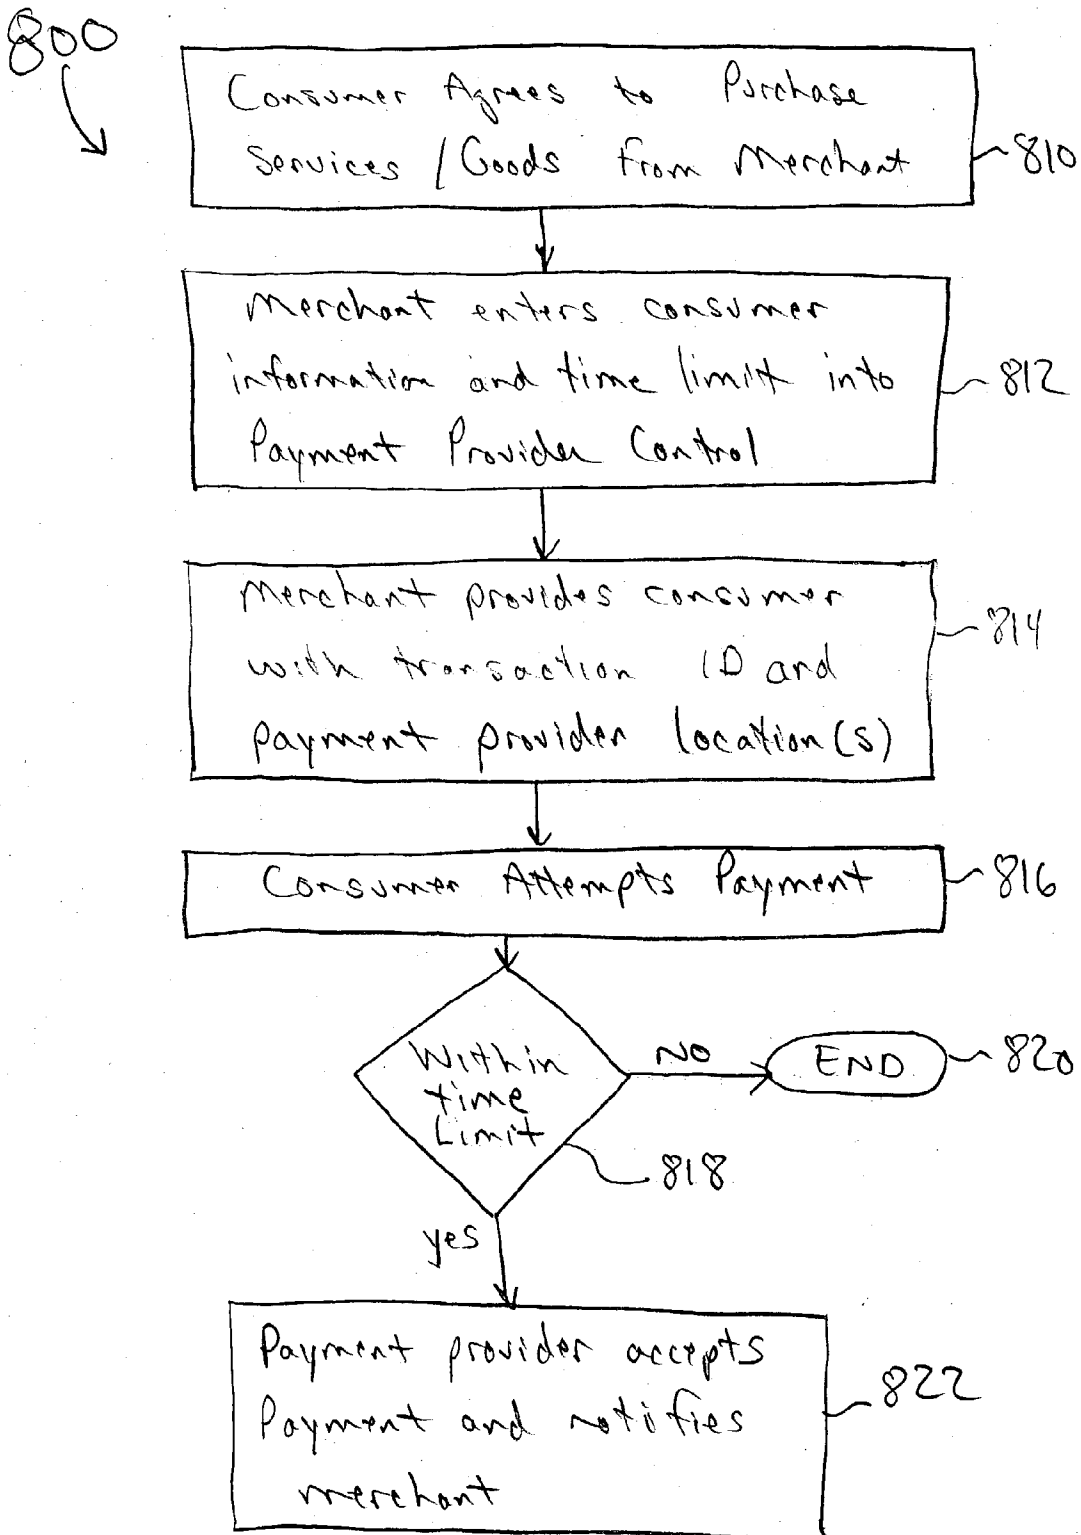 800
Consumer Agrees to Purchase
Services / Goods from Merchant
810
Merchant enters consumer
information and time limit into
Payment Provider Control
812
Merchant provides consumer
with transaction ID and
payment provider location(s)
814
Consumer Attempts Payment
816
Within
time
Limit
NO
END
820
818
yes
Payment provider accepts
Payment and notifies
merchant
822